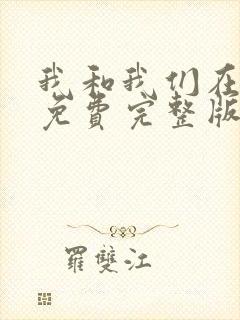 我和我们在
免费完整版
羅雙江